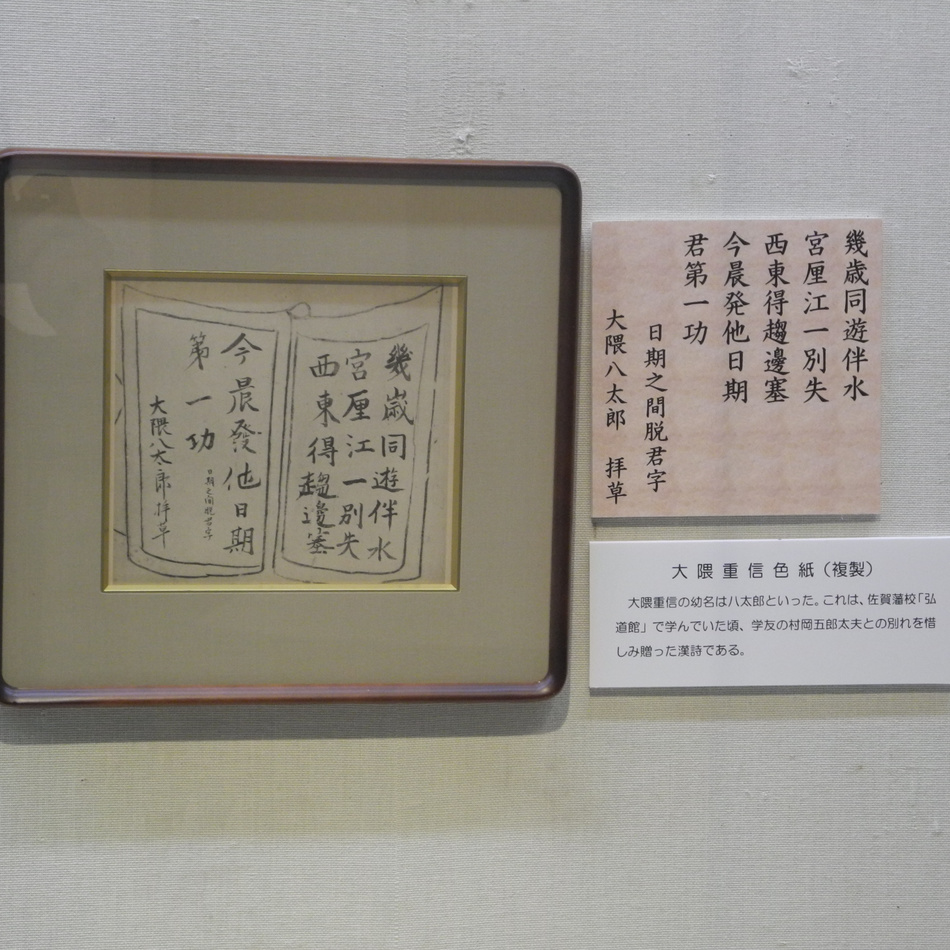 幾歳同遊伴水
宮厘江一別失
西東得趨邊塞
今晨發他日期
第一功
日期之間脱君字
大隈八太郎拝草
幾歳同遊伴水
宮厘江一別失
西東得趨邊塞
今晨発他日期
君第一功
日期之間脱君字
大隈八太郎 拝草
大隈重信色紙（複製）
大隈重信の幼名は八太郎といった。これは、佐賀藩校「弘
道館」で学んでいた頃、学友の村岡五郎太夫との別れを惜
しみ贈った漢詩である。